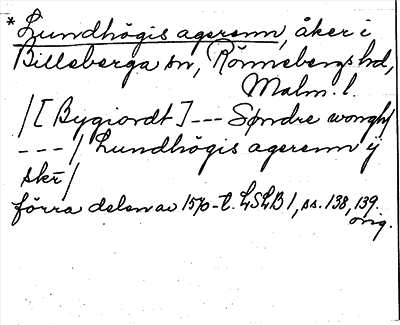 * Lundhögis agerenn, åker i
Billeberga sn, Rönnebergs hd,
Malm. l.
/[Bygiordt] --- Søndre wongh/
--- / Lundhögis agerenn ij
skr̄ /
förra delen av 1570-t. LSLB 1, ss. 138, 139.
orig.